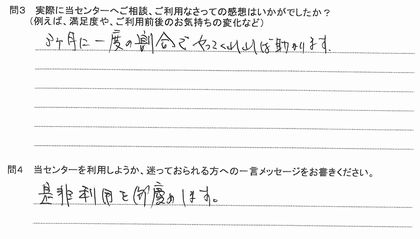 問3 実際に当センターへご相談、ご利用なさっての感想はいかがでしたか？
(例えば、満足度や、ご利用前後のお気持ちの変化など)
3ヶ月に一度の割合でやってくれれば助かります。
問4 当センターを利用しようか、迷っておられる方への一言メッセージをお書きください。
是非利用を
します。